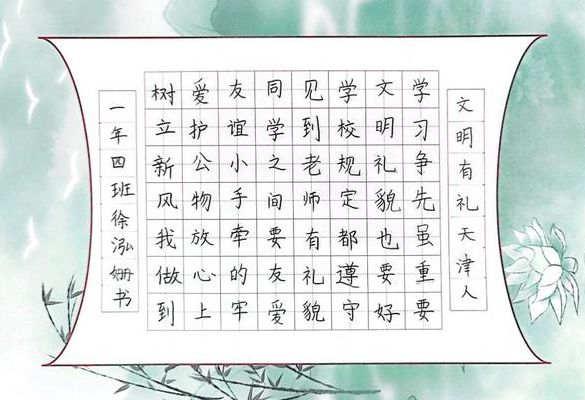 文明有礼天津人
学习争先虽重要
文明礼貌也要好
学校规定都遵守
见到老师有礼貌
同学之间要友爱
友谊小手牵的牢
爱护公物放心上
树立新风我做到
一年四班徐泓姗书